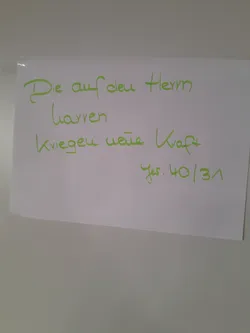 Die auf den Herrn
harren
kriegen neue Kraft
Jes. 40/31